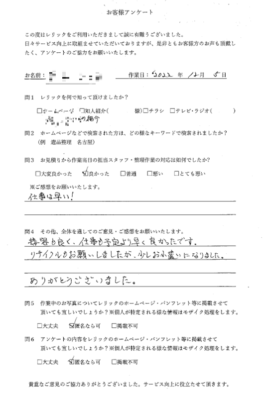 お客様アンケート
この度はレリックをご利用いただきまして誠に有難うございました。
日々サービス向上に取組ませていただいておりますが、是非ともお客様方のお声を頂戴したく、アンケートのご協力をお願いいたします。
お名前: 作業日: 2022 年 12 月 5 日
問1 レリックを何で知って頂けましたか?
□ホームページ □知人紹介( 様) □チラシ □テレビ・ラジオ( )
問2 ホームページなどで検索された方は、どの様なキーワードで検索されましたか?
(例 遺品整理 名古屋)
問3 お見積りから作業当日の担当スタッフ・整理作業の対応は如何でしたか?
□大変良かった □良かった □普通 □悪い □とても悪い
※ご感想をお願いいたします。
仕事は早い!
問4 その他、全体を通してのご意見・ご感想をお願いいたします。
も良く、仕事も予定より早く良かったです。
リサイクルもお願いしましたが、少しお小遣いになりました。
ありがとうございました。
問5 作業中のお写真についてレリックのホームページ・パンフレット等に掲載させて
頂いても宜しいでしょうか?※個人が特定される様な情報はモザイク処理をします。
□大丈夫 □匿名なら可 □掲載不可
問6 アンケートの内容をレリックのホームページ・パンフレット等に掲載させて
頂いても宜しいでしょうか?※個人が特定される様な情報はモザイク処理をします。
□大丈夫 □匿名なら可 □掲載不可
貴重なご意見のご協力ありがとうございました。サービス向上に役立たせて頂きます。